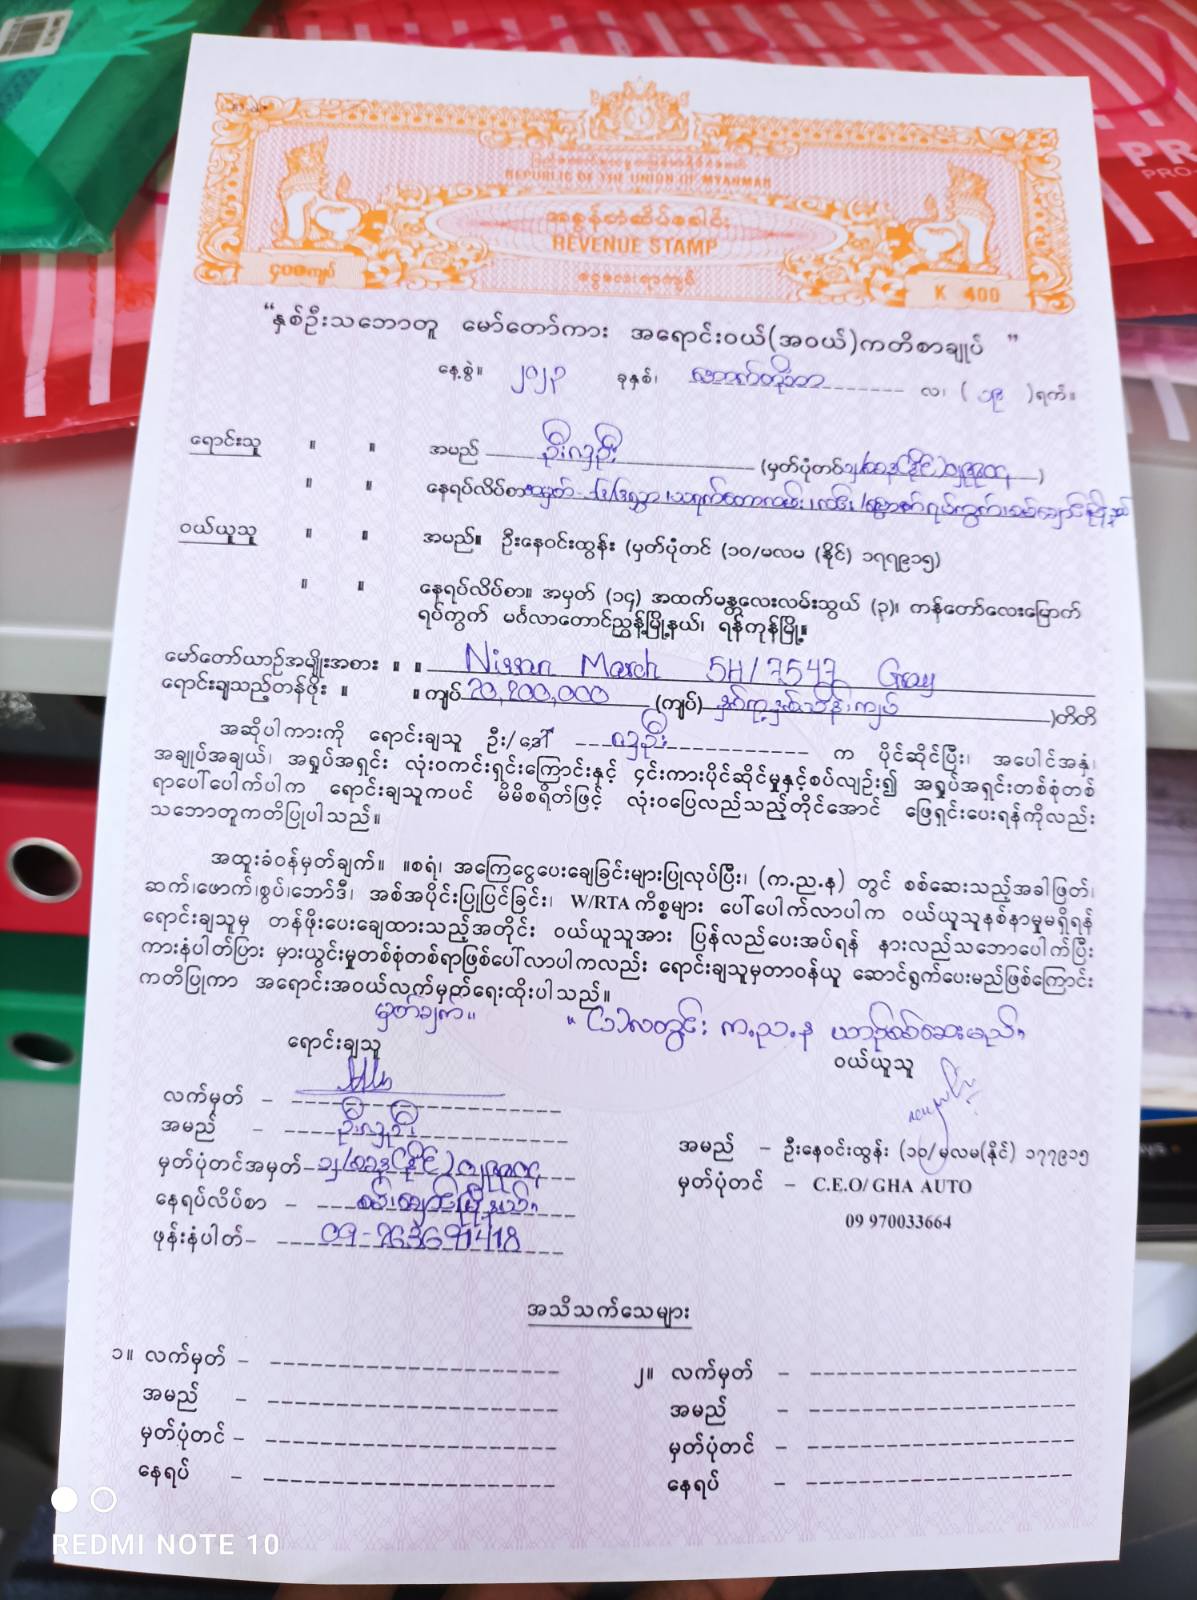 ပြည်ထောင်စုသမ္မတမြန်မာနိုင်ငံတော်
REPUBLIC OF THE UNION OF MYANMAR
အခွန်တံဆိပ်ခေါင်း
REVENUE STAMP
၄၀၀ကျပ်
ငွေလေးရာကျပ်
K 400
“နှစ်ဦးသဘောတူ မော်တော်ကား အရောင်းဝယ်(အဝယ်)ကတိစာချုပ် ”
နေ့စွဲ။ ၂၀၂၃ ခုနှစ်၊ အောက်တိုဘာ လ၊ ( ၁၉ )ရက်။
ရောင်းသူ ။ ။ အမည် ဦးလှဦး (မှတ်ပုံတင် )
။ ။ နေရပ်လိပ်စာ အမှတ် -
ဝယ်ယူသူ ။ ။ အမည်။ ဦးနေဝင်းထွန်း (မှတ်ပုံတင် (၁၀/မလမ (နိုင်) ၁၇၇၉၁၅)
။ ။ နေရပ်လိပ်စာ။ အမှတ် (၁၄) အထက်မန္တလေးလမ်းသွယ် (၃)၊ ကန်တော်လေးမြောက်
ရပ်ကွက် မင်္ဂလာတောင်ညွန့်မြို့နယ်၊ ရန်ကုန်မြို့။
မော်တော်ယာဉ်အမျိုးအစား ။ ။ Nissan March 5H/7547 Gray
ရောင်းချသည့်တန်ဖိုး ။ ။ ကျပ် 20,200,000 (ကျပ်) နှစ်ကုဋေနှစ်သိန်းကျပ် )တိတိ
အဆိုပါကားကို ရောင်းချသူ ဦး/ဒေါ် လှဦး က ပိုင်ဆိုင်ပြီး၊ အပေါင်အနှံ၊
အချုပ်အချယ်၊ အရှုပ်အရှင်း လုံးဝကင်းရှင်းကြောင်းနှင့် ၄င်းကားပိုင်ဆိုင်မှုနှင့်စပ်လျဉ်း၍ အရှုပ်အရှင်းတစ်စုံတစ်
ရာပေါ်ပေါက်ပါက ရောင်းချသူကပင် မိမိစရိတ်ဖြင့် လုံးဝပြေလည်သည့်တိုင်အောင် ဖြေရှင်းပေးရန်ကိုလည်း
သဘောတူကတိပြုပါသည်။
အထူးခံဝန်မှတ်ချက်။ ။စရံ၊ အကြေငွေပေးချေခြင်းများပြုလုပ်ပြီး၊ (က.ည.န) တွင် စစ်ဆေးသည့်အခါဖြတ်၊
ဆက်၊ဖောက်၊စွပ်၊ဘော်ဒီ၊ အစ်အပိုင်းပြုပြင်ခြင်း၊ W/RTA ကိစ္စများ ပေါ်ပေါက်လာပါက ဝယ်ယူသူနစ်နာမှုမရှိရန်
ရောင်းချသူမှ တန်ဖိုးပေးချေထားသည့်အတိုင်း ဝယ်ယူသူအား ပြန်လည်ပေးအပ်ရန် နားလည်သဘောပေါက်ပြီး
ကားနံပါတ်ပြား မှားယွင်းမှုတစ်စုံတစ်ရာဖြစ်ပေါ်လာပါကလည်း ရောင်းချသူမှတာဝန်ယူ ဆောင်ရွက်ပေးမည်ဖြစ်ကြောင်း
ကတိပြုကာ အရောင်းအဝယ်လက်မှတ်ရေးထိုးပါသည်။
မှတ်ချက်။ ။ (၁)လတွင်း က.ည.န ယာဉ်စစ်ဆေးမည်။
ရောင်းချသူ
ဝယ်ယူသူ
လက်မှတ် -
အမည် - ဦးလှဦး
မှတ်ပုံတင်အမှတ်-
နေရပ်လိပ်စာ - စမ်းချောင်းမြို့နယ်။
ဖုန်းနံပါတ်- 09-263691418
အမည် - ဦးနေဝင်းထွန်း (၁၀/မလမ(နိုင်) ၁၇၇၉၁၅
မှတ်ပုံတင် - C.E.O/ GHA AUTO
09 970033664
အသိသက်သေများ
၁။ လက်မှတ် -
အမည် -
မှတ်ပုံတင် -
နေရပ် -
၂။ လက်မှတ် -
အမည် -
မှတ်ပုံတင် -
နေရပ် -
REDMI NOTE 10